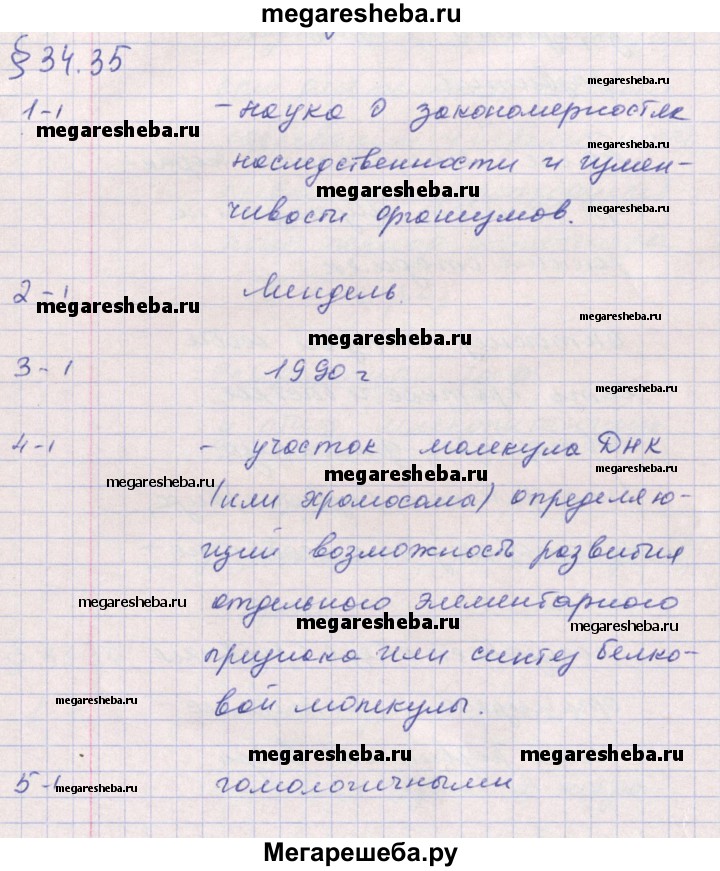 megaresheba.ru
§ 34.35
megaresheba.ru
1-1 - наука о закономерностях
megaresheba.ru
megaresheba.ru
наследственности и измен-
megaresheba.ru
megaresheba.ru
чивости организмов.
2-1 Мендель.
megaresheba.ru
megaresheba.ru
megaresheba.ru
3-1 1990 г
megaresheba.ru
4-1 - участок молекула ДНК
megaresheba.ru
megaresheba.ru
megaresheba.ru
(или хромосома) определяю-
щий возможность развития
megaresheba.ru
отдельного элементарного
megaresheba.ru
megaresheba.ru
признака или синтез белко-
вой молекулы.
megaresheba.ru
megaresheba.ru
megaresheba.ru
5-1 гомологичными
megaresheba.ru
Мегарешеба.ру